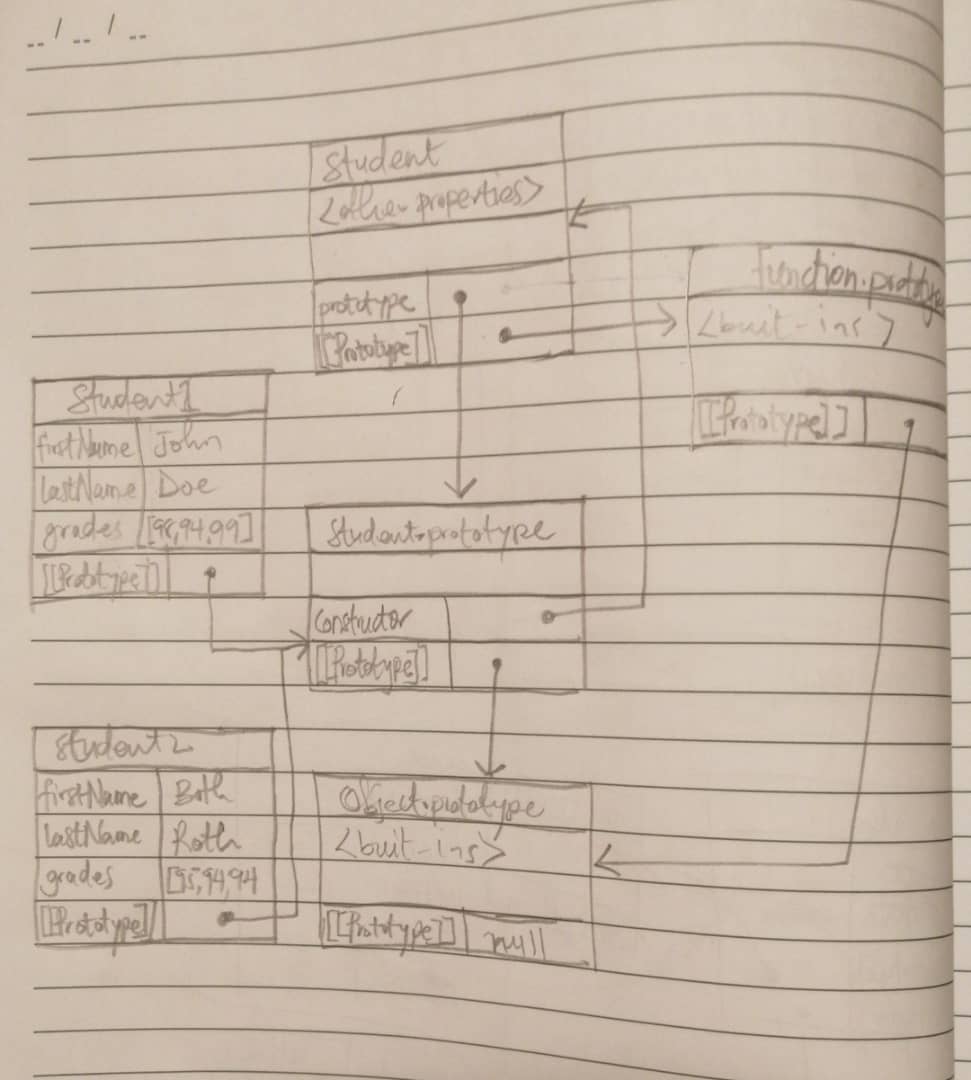 -- / -- / --
Student
<other properties>
prototype
[[Prototype]]
function.prototype
<buit-ins>
[[Prototype]]
Student1
firstName John
lastName Doe
grades [98,94,99]
[[Prototype]]
Student.prototype
Constructor
[[Prototype]]
Student2
firstName Both
lastName Roth
grades [95,94,94
[[Prototype]]
Object.prototype
<buit-ins>
[[Prototype]] null